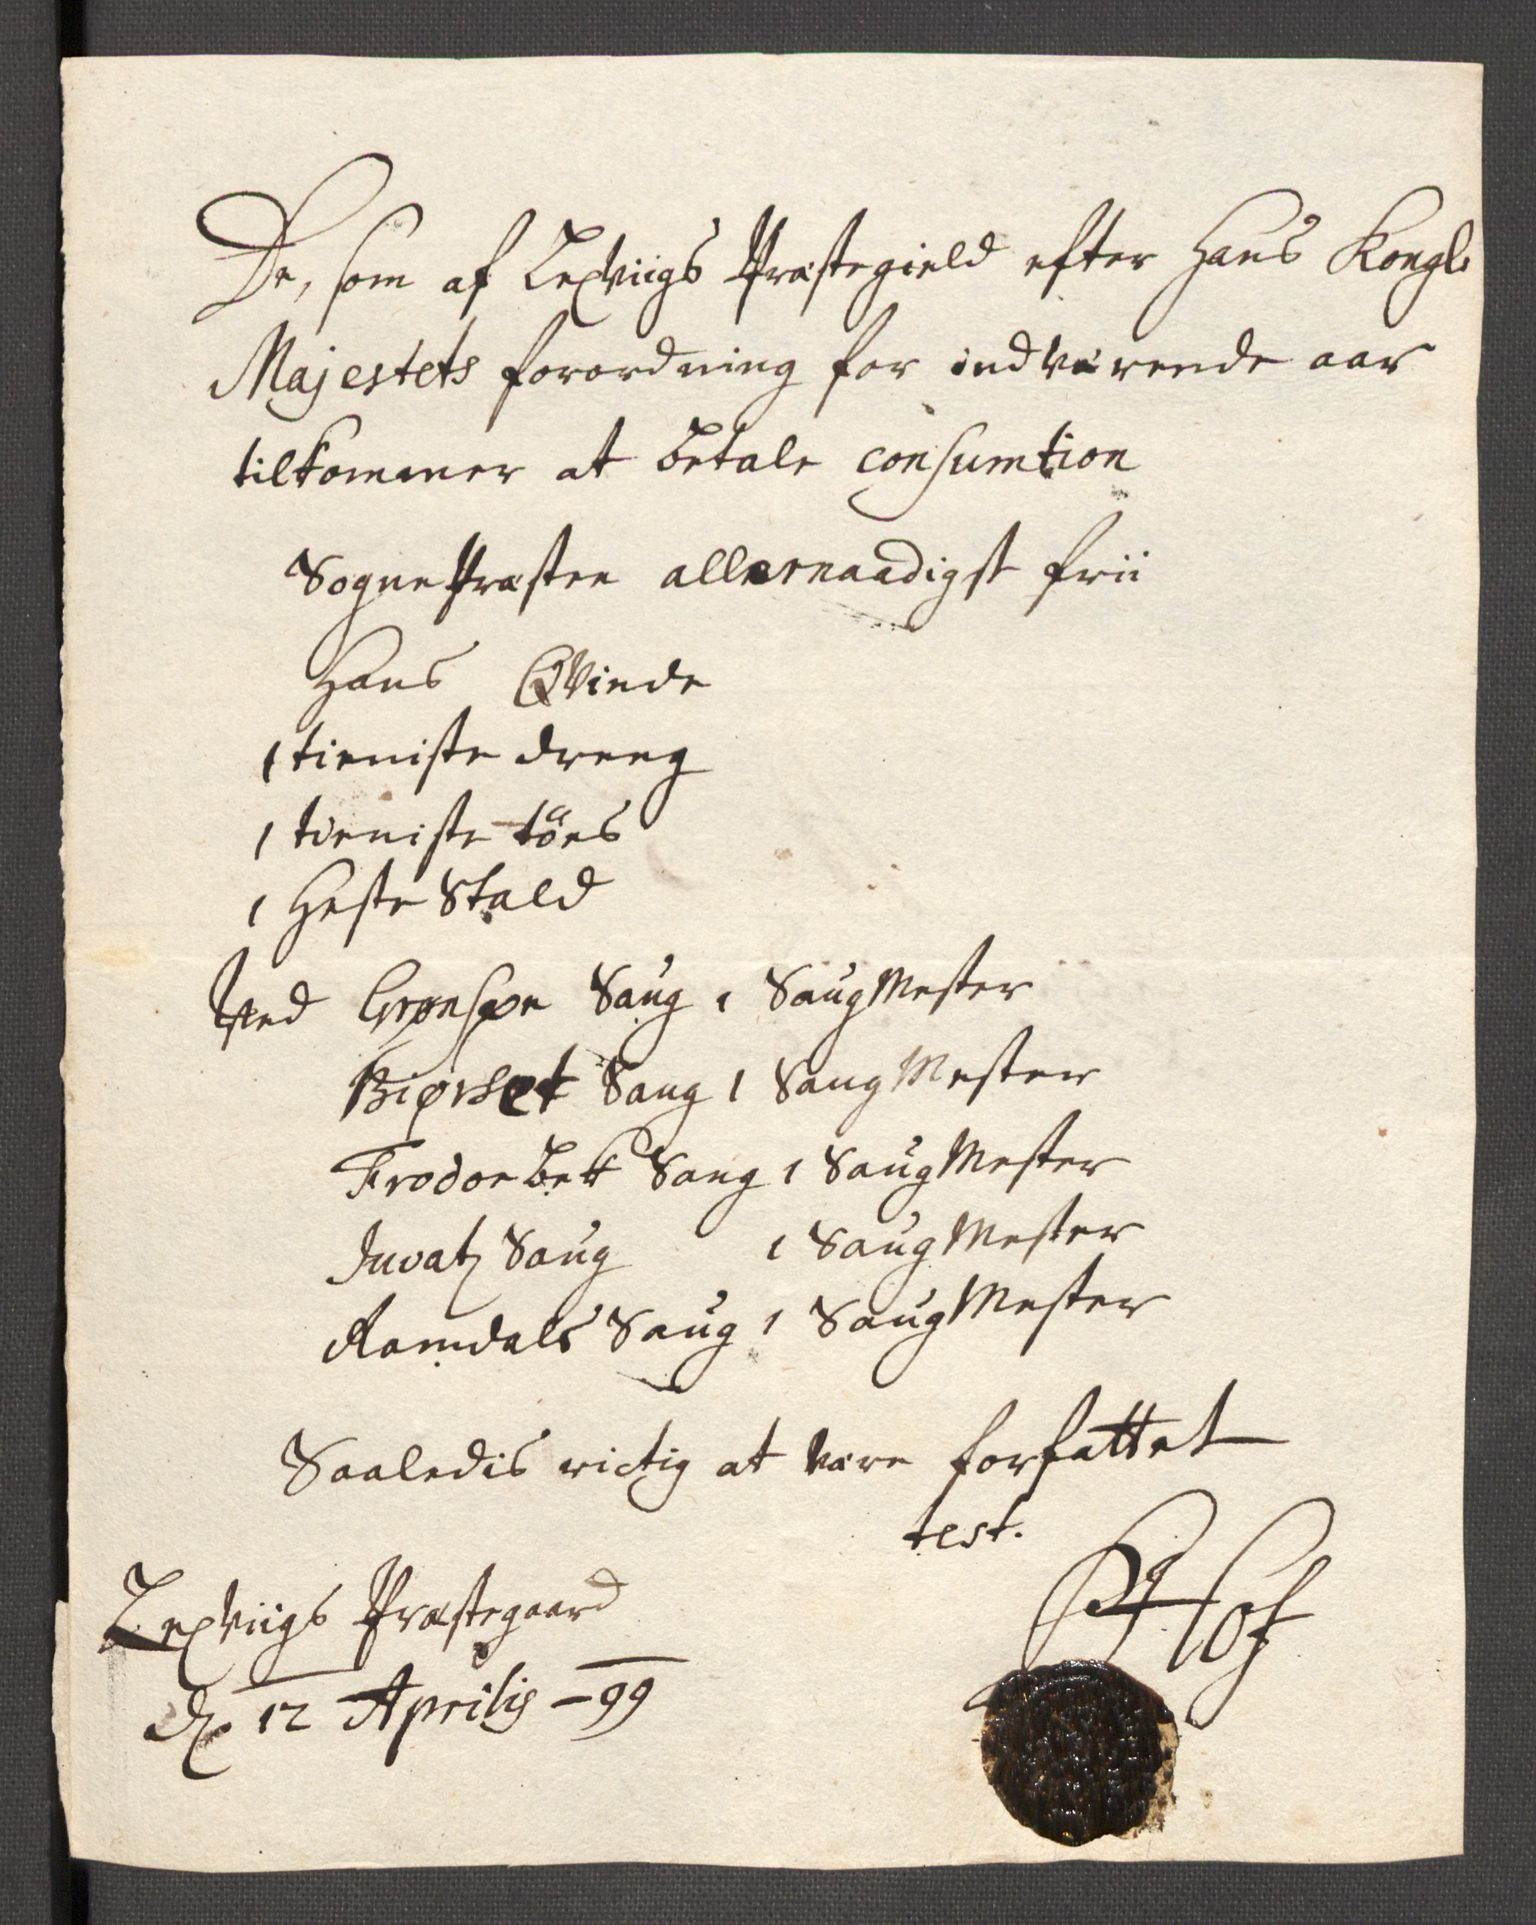 De, som af Lexviigs Præstegield efter Hans Kongl.
Majestets forordning for indværende aar
tilkommer at betale Consumtion
SognePræsten allernaadigst frii
Hans Qvinde
1 tieniste dreng
1 tieniste töes
1 Heste Stald
Ved Grønsøe Saug 1 SaugMester
Biørset Saug 1 SaugMester
Frodoe bek Saug 1 SaugMester
Saug 1 SaugMester
Ramdals Saug 1 SaugMester
Saaledis rictig at være forfattet
test.
Lexviigs Præstegaard
d. 12 Aprilis -99
Hof